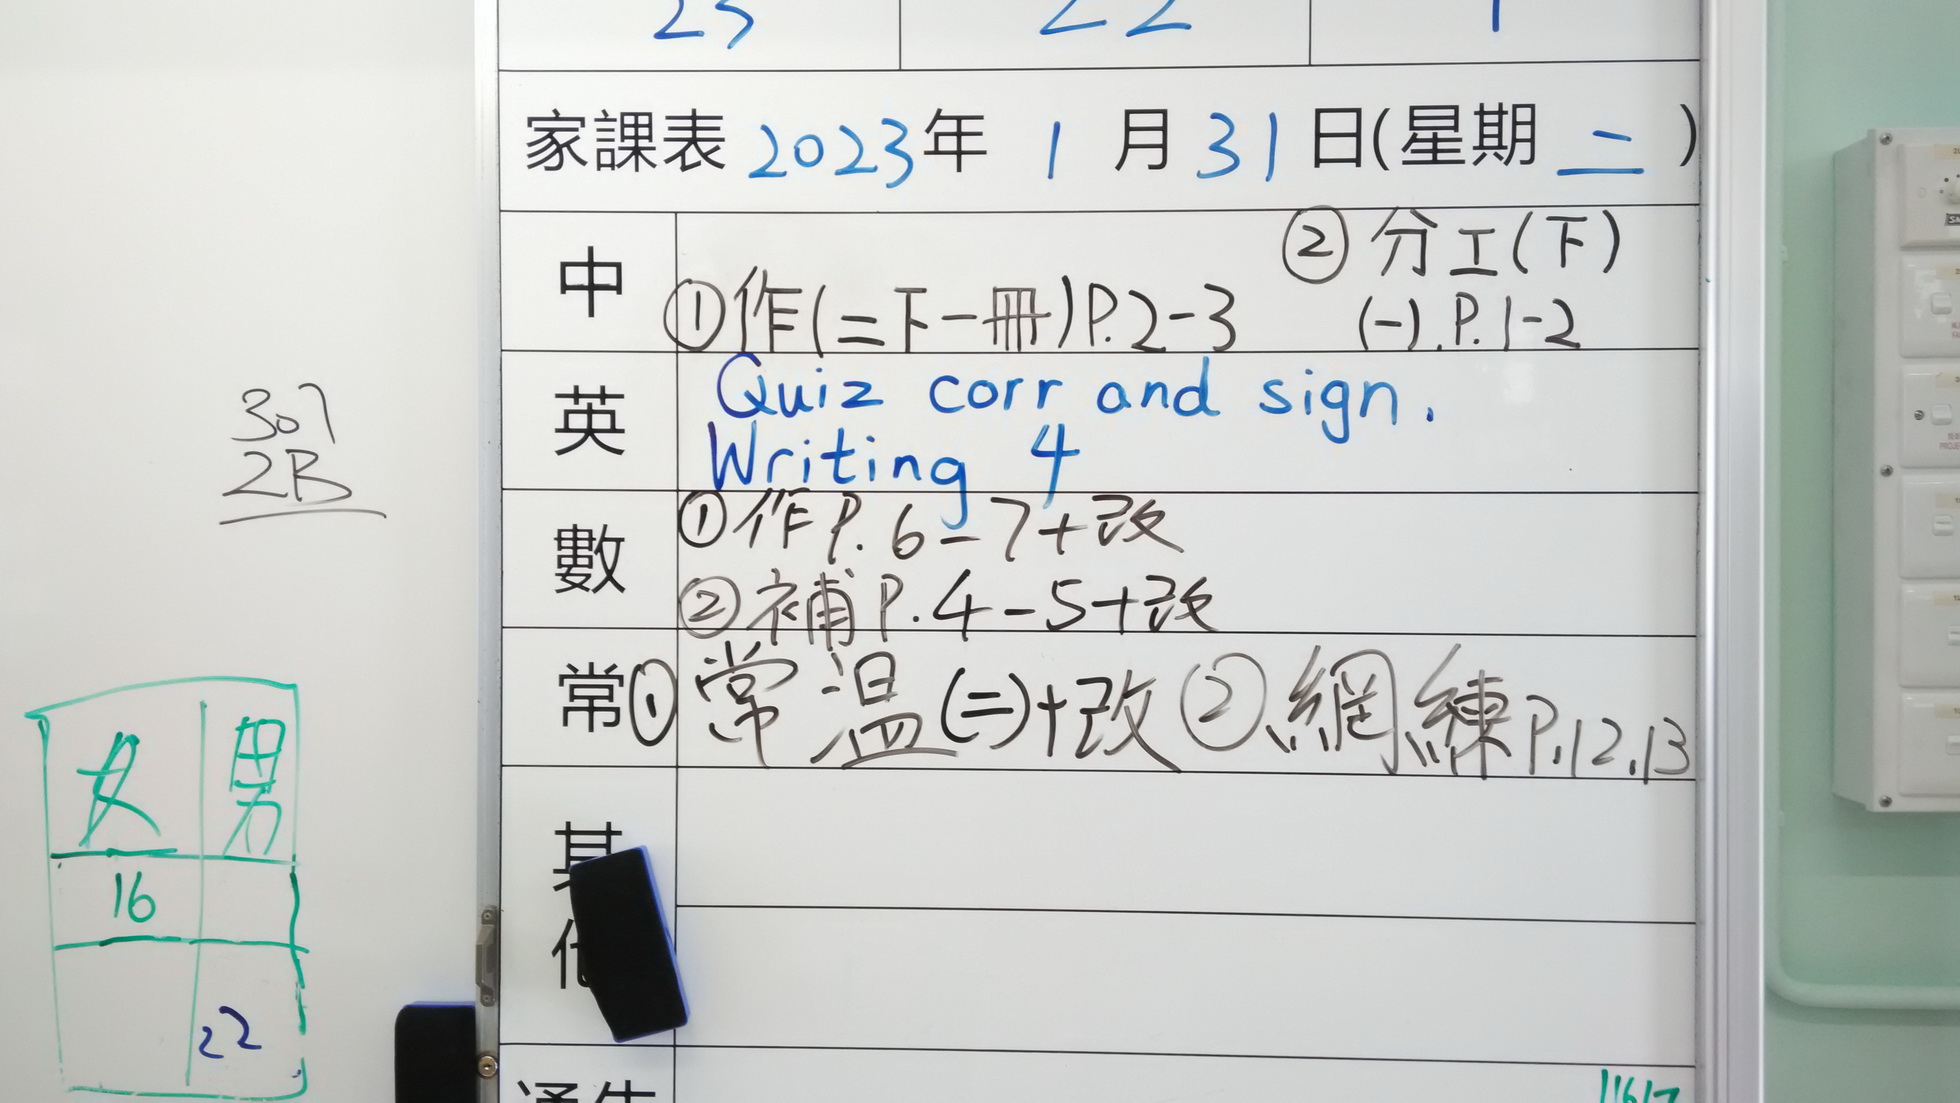 23 22 1
家課表 2023年 1 月 31 日(星期 二 )
中
② 分工(下)
①作(二下一冊)P.2-3
(一).P.1-2
英
Quiz corr and sign.
Writing 4
數
①作P.6-7+改
②補P.4-5+改
常
①常温(二)+改②網練P.12,13
其
307
2B
女 男
16
22